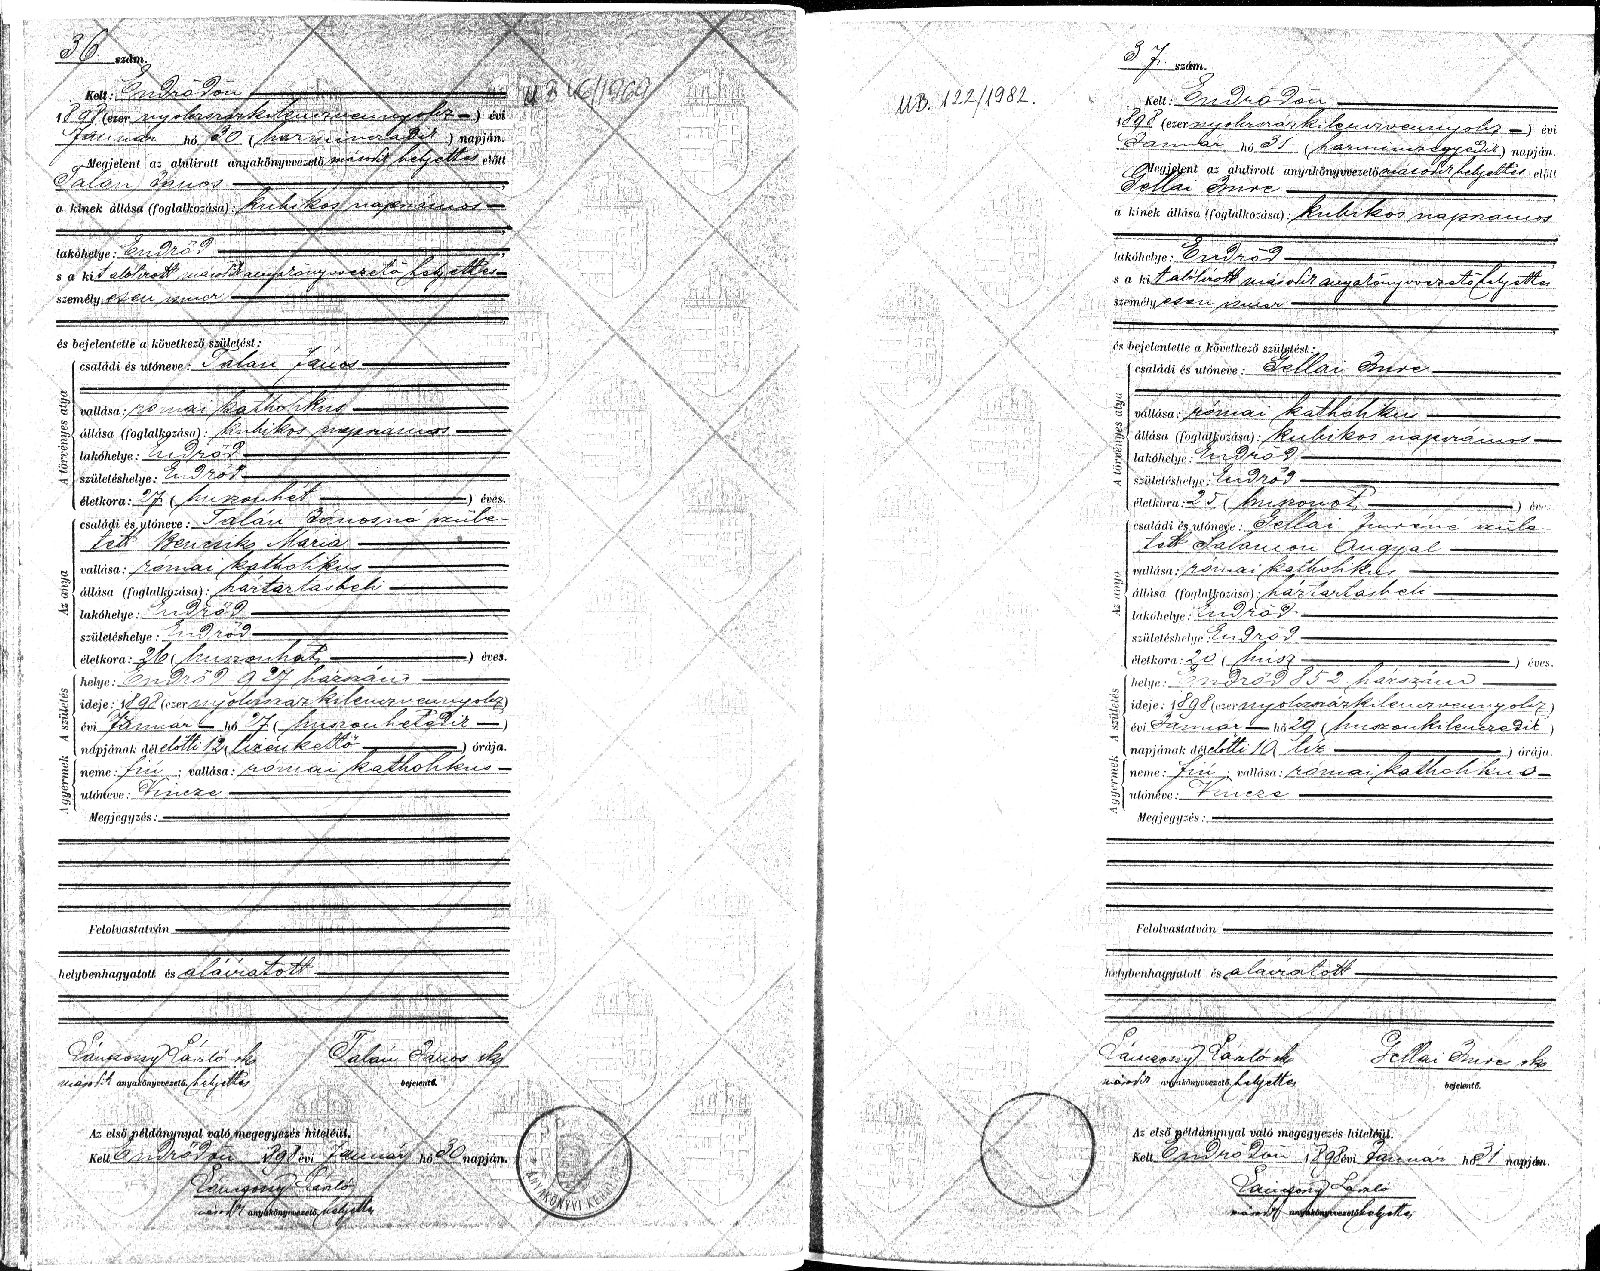 36 szám.
Kelt: Endrődön
1898 (ezer nyolczszázkilenczvennyolcz) évi
Január hó 30 (harminczadik) napján.
Megjelent az alulirott anyakönyvvezető másodk helyettes előtt
Talán János
a kinek állása (foglalkozása): kubikos napszámos
lakóhelye: Endrőd
s a kit alólirott másodk anyakönyvvezető helyettes
személyesen ismer
és bejelentette a következő születést:
A törvényes atya
családi és utóneve: Talán János
vallása: római katholikus
állása (foglalkozása): kubikos napszámos
lakóhelye: Endrőd
születéshelye: Endrőd
életkora: 27 (huszonhét) éves.
Az anya
családi és utóneve: Talán Jánosné szüle-
tett Bencsik Mária
vallása: római katholikus
állása (foglalkozása): háztartásbeli
lakóhelye: Endrőd
születéshelye: Endrőd
életkora: 26 (huszonhat) éves.
A gyermek A születés
helye: Endrőd 927 házszám
ideje: 1898 (ezer nyolczszázkilenczvennyolcz)
évi Január hó 27 (huszonhetedik)
napjának délelőtti 12 (tizenkettő) órája.
neme: fiú; vallása: római katholikus
utóneve: Vincze
Megjegyzés:
Felolvastatván
helybenhagyatott és aláiratott
László sk Talán János sk
másodk anyakönyvvezető helyettes bejelentő.
Az első példánynyal való megegyezés hiteléül.
Kelt Endrődön 1898 évi Január hó 30 napján.
László
másodk anyakönyvvezető helyettes
37. szám.
UB. 122/1982.
Kelt: Endrődön
1898 (ezer nyolczszázkilenczvennyolcz) évi
Január hó 31 (harminczegyedik) napján.
Megjelent az alulirott anyakönyvvezető másodk helyettes előtt
Gellai Imre
a kinek állása (foglalkozása): kubikos napszámos
lakóhelye: Endrőd
s a kit alólirott másodk anyakönyvvezető helyettes
személyesen ismer
és bejelentette a következő születést:
A törvényes atya
családi és utóneve: Gellai Imre
vallása: római katholikus
állása (foglalkozása): kubikos napszámos
lakóhelye: Endrőd
születéshelye: Endrőd
életkora: 25 (huszonöt) éves
Az anya
családi és utóneve: Gellai Imréné szüle
tett Salamon Angyal
vallása: római katholikus
állása (foglalkozása): háztartásbeli
lakóhelye: Endrőd
születéshelye Endrőd
életkora: 20 (húsz) éves.
A gyermek A születés
helye: Endrőd 852 házszám
ideje: 1898 (ezer nyolczszázkilenczvennyolcz)
évi Január hó 29 (huszonkilenczedik)
napjának délelőtti 10 tíz) órája.
neme: fiú; vallása: római katholikus
utóneve: Vincze
Megjegyzés:
Felolvastatván
helybenhagyatott és aláiratott
László sk Gellai Imre sk
másodk anyakönyvvezető, helyettes bejelentő.
Az első példánynyal való megegyezés hiteléül.
Kelt Endrődön 1898 évi Január hó 31 napján.
László
másodk anyakönyvvezető helyettes